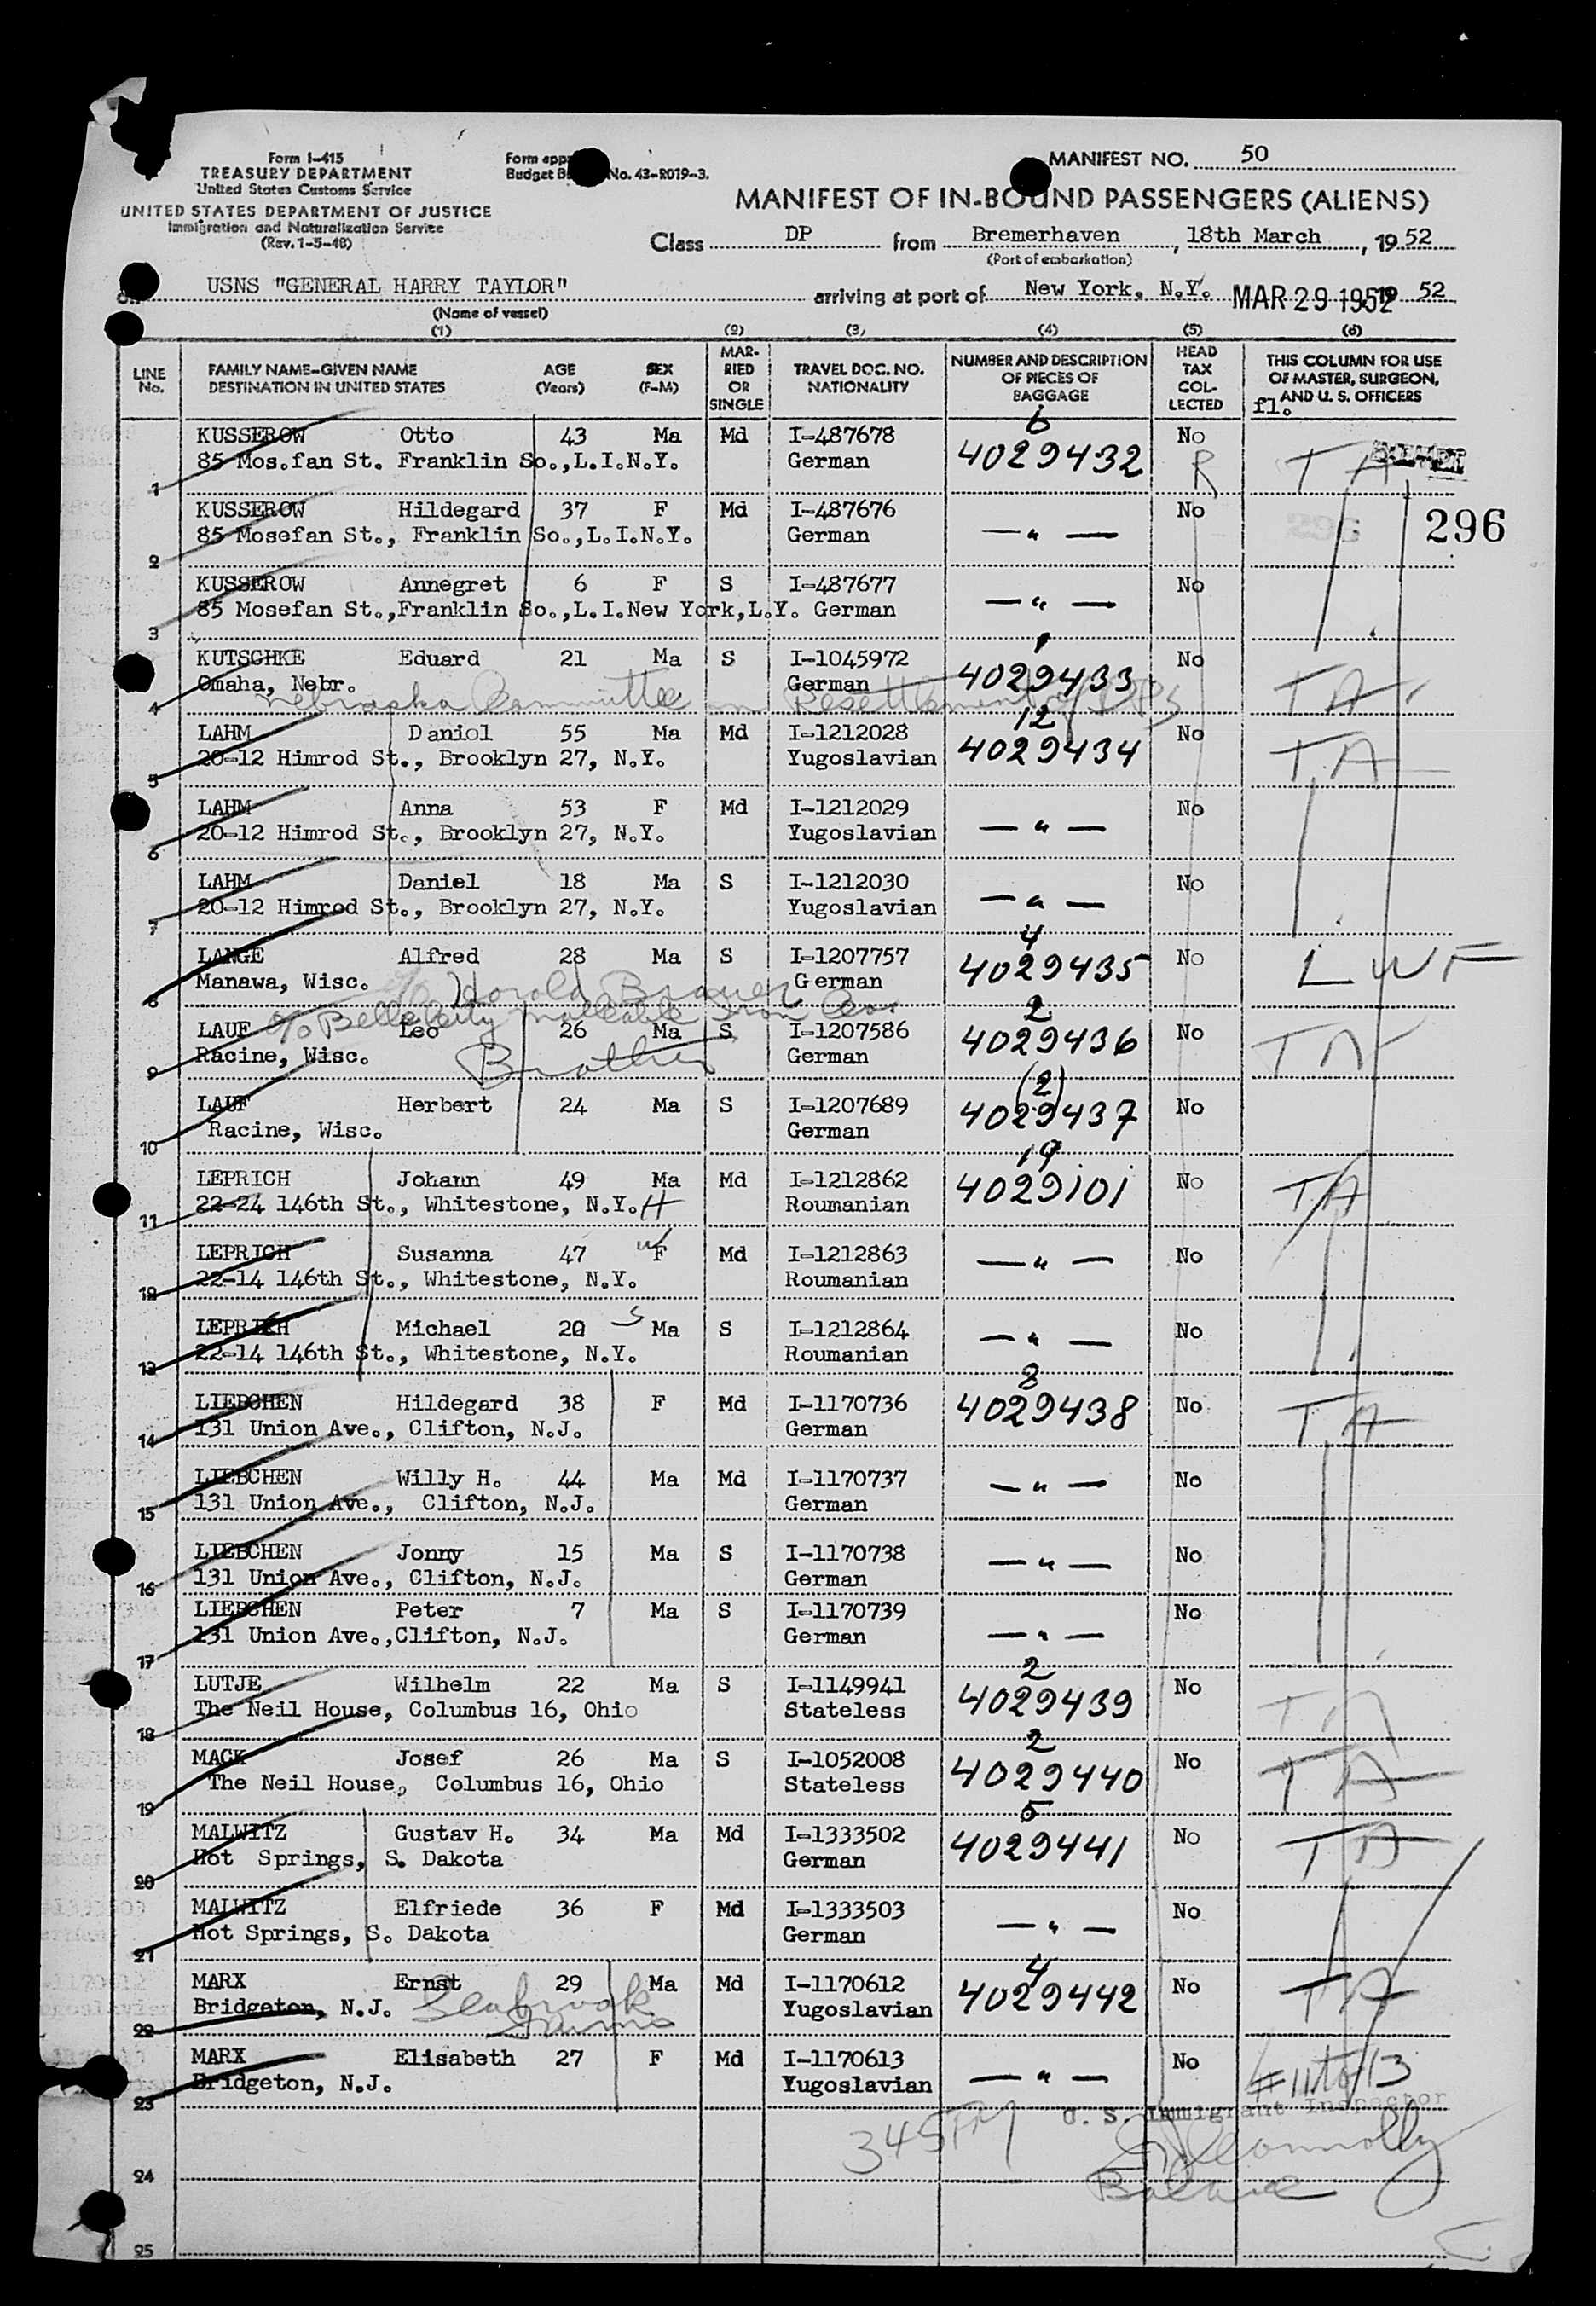 Form I-415
TREASURY DEPARTMENT
United States Customs Service
UNITED STATES DEPARTMENT OF JUSTICE
Immigration and Naturalization Service
(Rev. 1-5-48)
Form app
Budget B No. 43-R019-3.
MANIFEST NO. 50
MANIFEST OF IN-BOUND PASSENGERS (ALIENS)
Class DP from Bremerhaven, 18th March, 19 52
(Port of embarkation)
USNS "GENERAL HARRY TAYLOR" arriving at port of New York, N.Y. MAR 29 1952 19 52
(Name of vessel)
(1) (2) (3) (4) (5) (6)
LINE No. FAMILY NAME-GIVEN NAME DESTINATION IN UNITED STATES AGE (Years) SEX (F-M) MARRIED OR SINGLE TRAVEL DOC. NO. NATIONALITY NUMBER AND DESCRIPTION OF PIECES OF BAGGAGE HEAD TAX COLLECTED THIS COLUMN FOR USE OF MASTER, SURGEON, AND U. S. OFFICERS
fl.
6
KUSSEROW Otto 43 Ma Md I-487678 4029432 No
85 Mos.fan St. Franklin So.,L.I.N.Y. German R TA
1
KUSSEROW Hildegard 37 F Md I-487676 — " — No 296
85 Mosefan St., Franklin So.,L.I.N.Y. German
2
KUSSEROW Annegret 6 F S I-487677 — " — No
85 Mosefan St.,Franklin So.,L.I.New York,L.Y. German
3
1
KUTSCHKE Eduard 21 Ma S I-1045972 4029433 No TA
Omaha, Nebr. German
4 Nebraska Committee on Resettlement of DPS
12
LAHM Daniol 55 Ma Md I-1212028 4029434 No TA
20-12 Himrod St., Brooklyn 27, N.Y. Yugoslavian
5
LAHM Anna 53 F Md I-1212029 — " — No
20-12 Himrod St., Brooklyn 27, N.Y. Yugoslavian
6
LAHM Daniel 18 Ma S I-1212030 — " — No
20-12 Himrod St., Brooklyn 27, N.Y. Yugoslavian
7
4
LANGE Alfred 28 Ma S I-1207757 4029435 No LWF
Manawa, Wisc. German
8 % Harold Brauer
% Belle City Malleable Iron Co.
2
LAUF Leo 26 Ma S I-1207586 4029436 No TA
Racine, Wisc. German
9 Brother
(2)
LAUF Herbert 24 Ma S I-1207689 4029437 No
Racine, Wisc. German
10
19
LEPRICH Johann 49 Ma Md I-1212862 4029101 No TA
22-24 146th St., Whitestone, N.Y. H Roumanian
11
LEPRICH Susanna 47 W F Md I-1212863 — " — No
22-14 146th St., Whitestone, N.Y. Roumanian
12
LEPRICH Michael 20 S Ma S I-1212864 — " — No
22-14 146th St., Whitestone, N.Y. Roumanian
13
8
LIEBCHEN Hildegard 38 F Md I-1170736 4029438 No TA
131 Union Ave., Clifton, N.J. German
14
LIEBCHEN Willy H. 44 Ma Md I-1170737 — " — No
131 Union Ave., Clifton, N.J. German
15
LIEBCHEN Jonny 15 Ma S I-1170738 — " — No
131 Union Ave., Clifton, N.J. German
16
LIEBCHEN Peter 7 Ma S I-1170739 — " — No
131 Union Ave.,Clifton, N.J. German
17
2
LUTJE Wilhelm 22 Ma S I-1149941 4029439 No TA
The Neil House, Columbus 16, Ohio Stateless
18
2
MACK Josef 26 Ma S I-1052008 4029440 No TA
The Neil House, Columbus 16, Ohio Stateless
19
5
MALWITZ Gustav H. 34 Ma Md I-1333502 4029441 No TA
Hot Springs, S. Dakota German
20
MALWITZ Elfriede 36 F Md I-1333503 — " — No
Hot Springs, S. Dakota German
21
4
MARX Ernst 29 Ma Md I-1170612 4029442 No TA
Bridgeton, N.J. Seabrook Farms Yugoslavian
22
MARX Elisabeth 27 F Md I-1170613 — " — No # 11 to 13
Bridgeton, N.J. Yugoslavian
23
345 PM U. S. Immigrant Inspector
Connolly
24 Balance
25